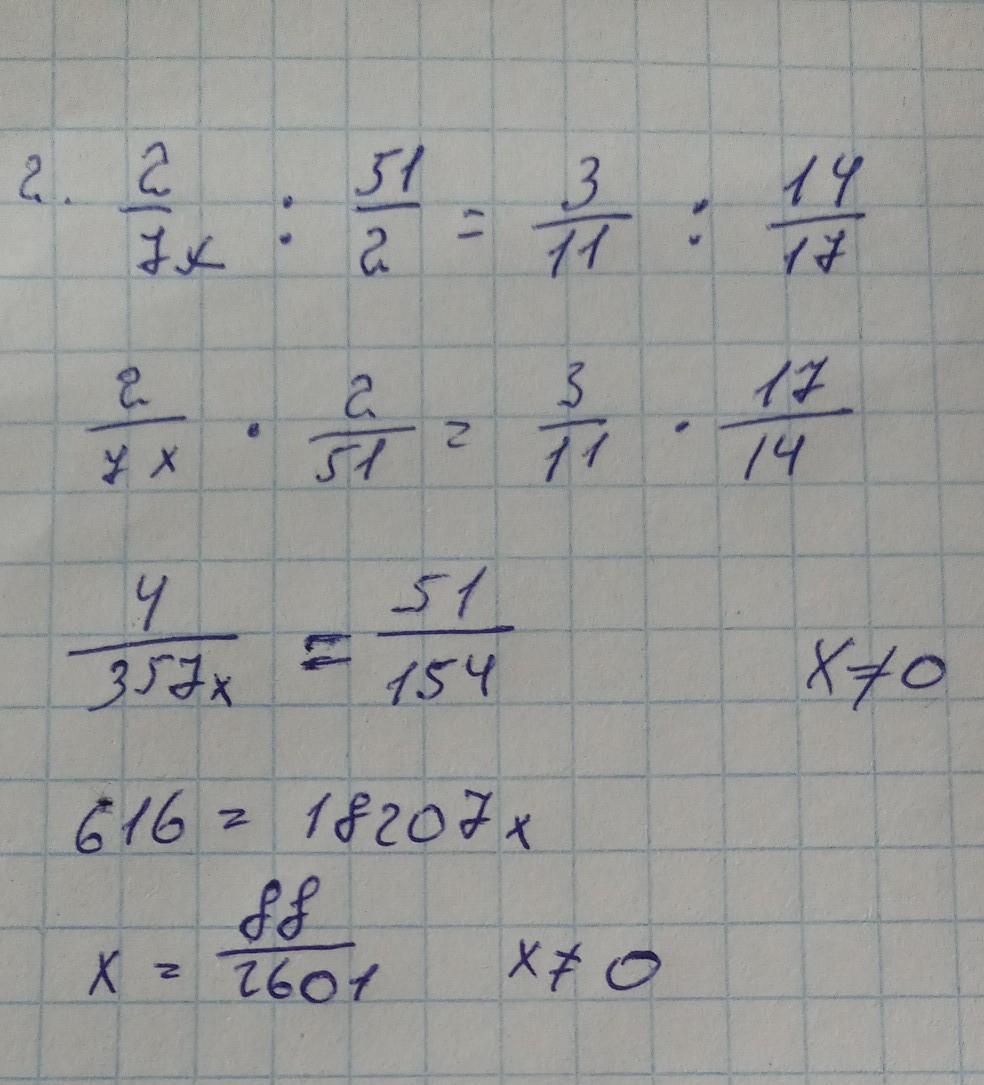 2. 2/7x : 51/2 = 3/11 : 14/17
2/7x · 2/51 = 3/11 · 17/14
4/357x = 51/154 x≠0
616 = 18207x
x = 88/2601 x≠0